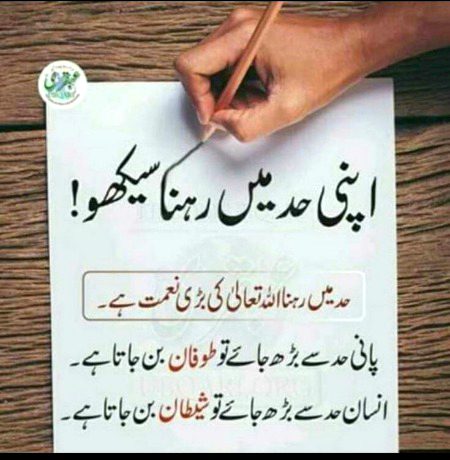 عبقری
اپنی حد میں رہنا سیکھو!
حد میں رہنا اللہ تعالیٰ کی بڑی نعمت ہے۔
پانی حد سے بڑھ جائے تو طوفان بن جاتا ہے۔
انسان حد سے بڑھ جائے تو شیطان بن جاتا ہے۔